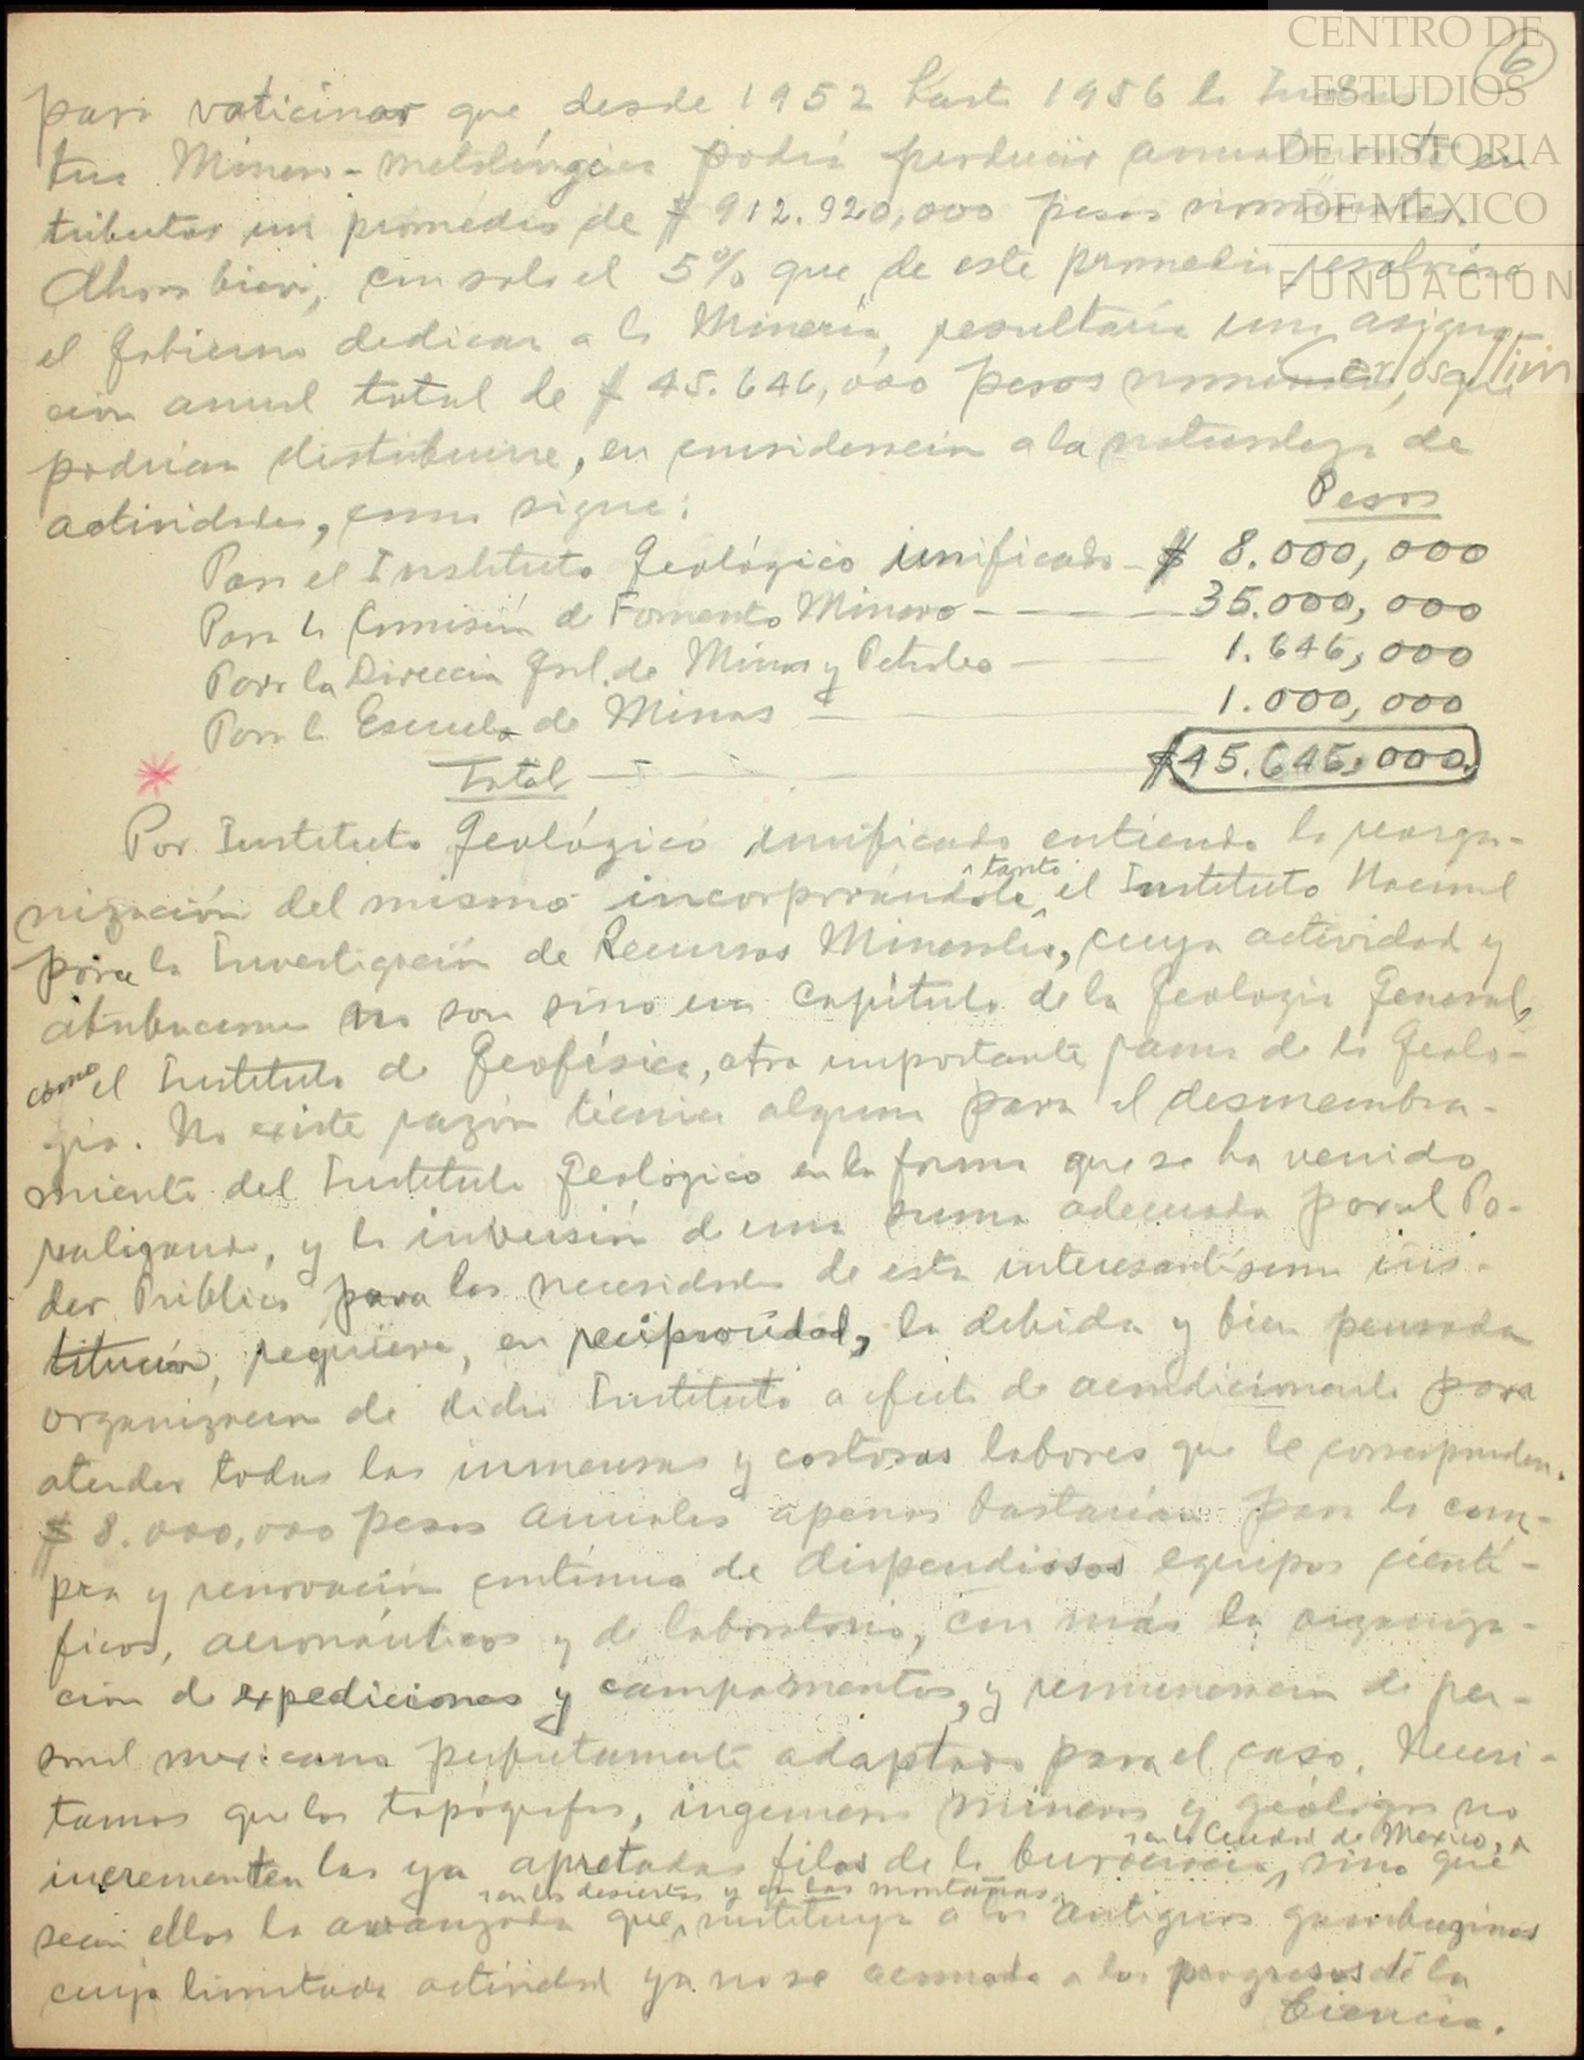 CENTRO DE
ESTUDIOS
DE HISTORIA
DE MEXICO
FUNDACION
Carlos Slim
6
para vaticinar que desde 1952 hasta 1956 la Indus-
tria Minero-metalúrgica podrá producir anualmente en
tributos un promedio de $ 912.920,000 pesos nominales.
Ahora bien, con solo el 5% que de este promedio resolviera
el Gobierno dedicar a la Minería, resultaría una asigna-
ción anual total de $ 45.646,000 pesos nominales, que
podrían distribuirse, en consideración a la naturaleza de
actividades, como sigue:
Pesos
Para el Instituto Geológico unificado - $ 8.000,000
Para la Comisión de Fomento Minero - 35.000,000
Para la Dirección Gral. de Minas y Petroleo - 1.646,000
Para la Escuela de Minas - 1.000,000
Total - $45.646,000.
Por Instituto Geológico unificado entiendo la reorga-
nización del mismo incorporándole tanto el Instituto Nacional
para la Investigación de Recursos Minerales, cuya actividad y
atribuciones no son sino un capítulo de la Geología General,
como el Instituto de Geofísica, otra importante rama de la Geolo-
gía. No existe razón técnica alguna para el desmembra-
miento del Instituto Geológico en la forma que se ha venido
realizando, y la inversión de una suma adecuada por el Po-
der Público para las necesidades de esta interesantísima ins-
titución, requiere, en reciprocidad, la debida y bien pensada
organización de dicho Instituto a efecto de acondicionarlo para
atender todas las inmensas y costosas labores que le corresponden.
$ 8.000,000 pesos anuales apenas bastarían para la com-
pra y renovación contínua de dispendiosos equipos cientí-
ficos, aeronáuticos y de laboratorio, con más la organiza-
ción de expediciones y campamentos, y remuneración de per-
sonal mexicano perfectamente adaptado para el caso. Necesi-
tamos que los topógrafos, ingenieros mineros y geólogos no
incrementen las ya apretadas filas de la burocracia en la Ciudad de Mexico, sino que
sean ellos la avanzada que en los desiertos y en las montañas substituya a los antiguos gambuzinos
cuya limitada actividad ya no se acomoda a los progresos de la
Ciencia.